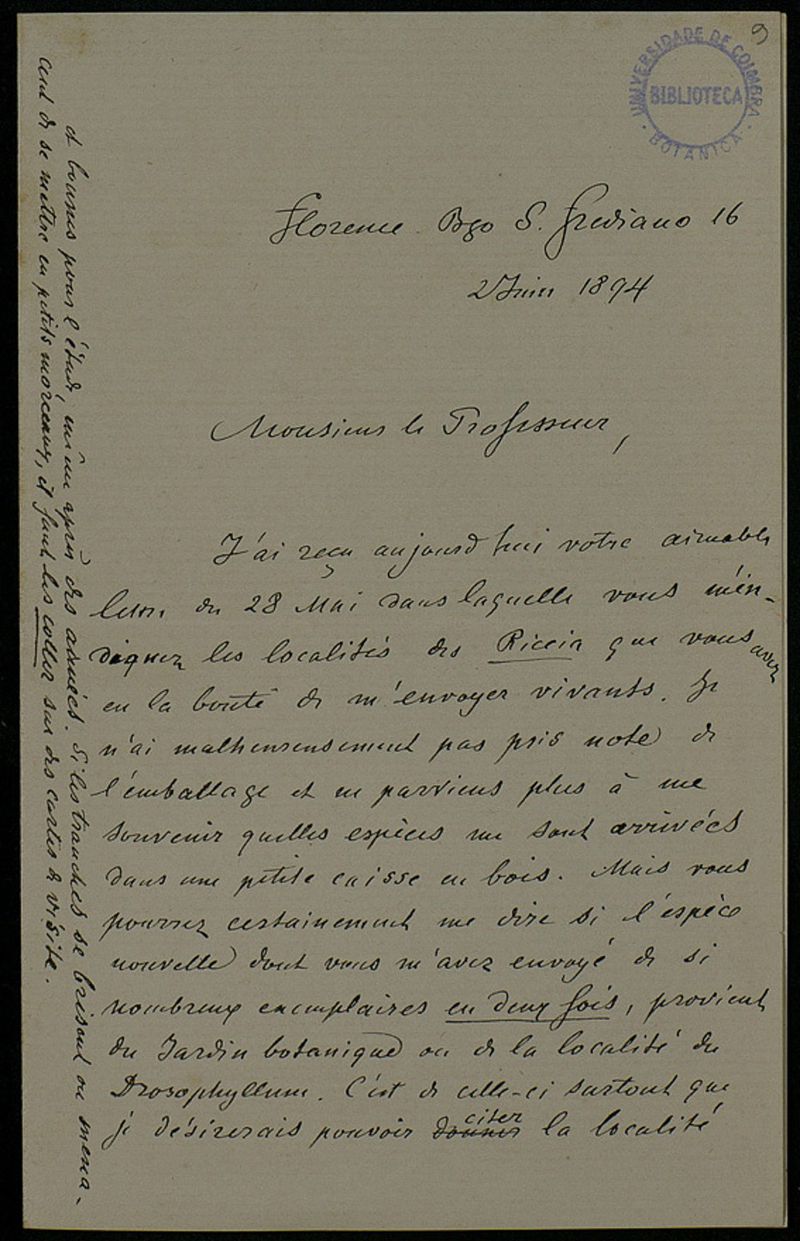 9
UNIVERSIDADE DE COIMBRA
BIBLIOTECA
BOTANICA
Florence Bgo S. Frediano 16
2 Juin 1894
Monsieur le Professeur,
J'ai reçu aujourd'hui votre aimable
lettre du 28 Mai dans laquelle vous m'in-
diquez les localités des Riccia que vous avez
eu la bonté de m'envoyer vivants. Je
n'ai malheureusement pas pris note de
l'emballage et ne parviens plus à me
souvenir quelles espèces me sont arrivées
dans une petite caisse en bois. Mais vous
pourrez certainement me dire si l'espèce
nouvelle dont vous m'avez envoyé de si
nombreux exemplaires en deux fois, provient
du Jardin botanique ou de la localité du
Drosophyllum. C'est de celle-ci surtout que
je désirerais pouvoir donner citer la localité
et bonnes pour l'étude, même après des années. Si les tranches se brisent ou mena-
cent de se mettre en petits morceaux, il faut les coller sur des cartes de visite.